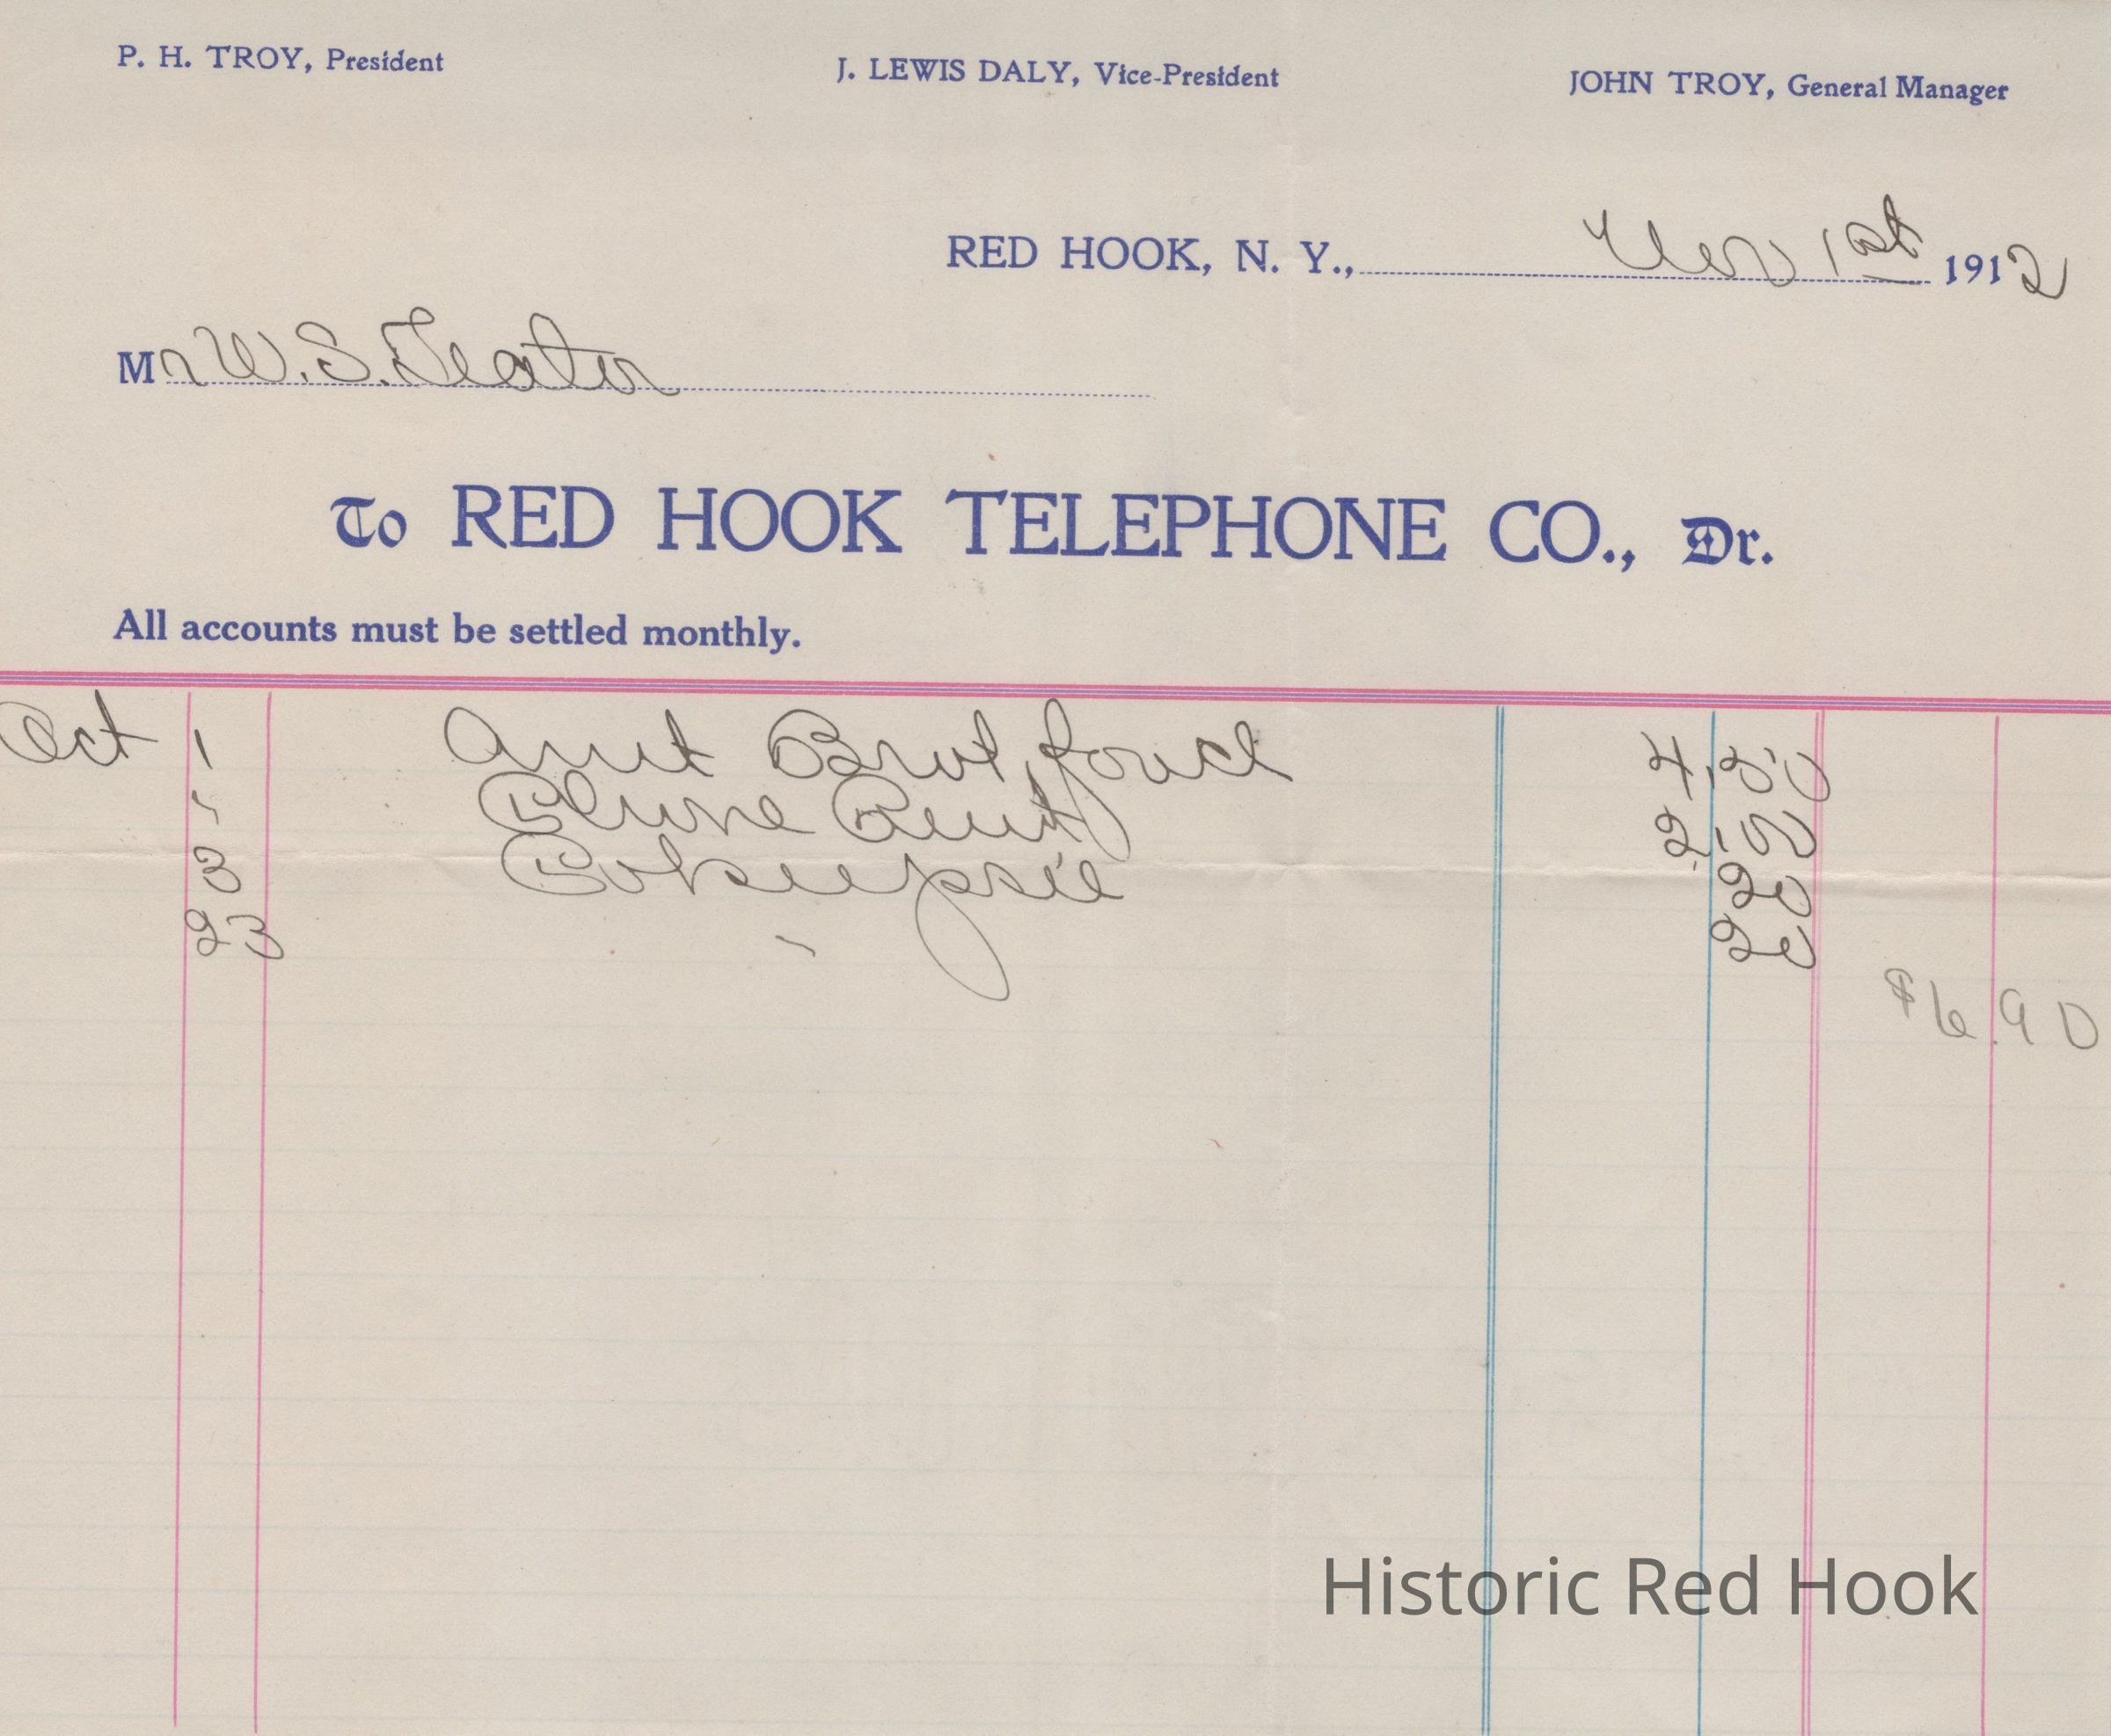 P. H. TROY, President J. LEWIS DALY, Vice-President JOHN TROY, General Manager
RED HOOK, N. Y., Nov 1st 1912
Mr W.S. Teator
To RED HOOK TELEPHONE CO., Dr.
All accounts must be settled monthly.
Oct 1 Amt Brot forwd 4.50
" Phone Rent 2.00
3 Pokeepsie 20
23 " 20
$6.90
Historic Red Hook